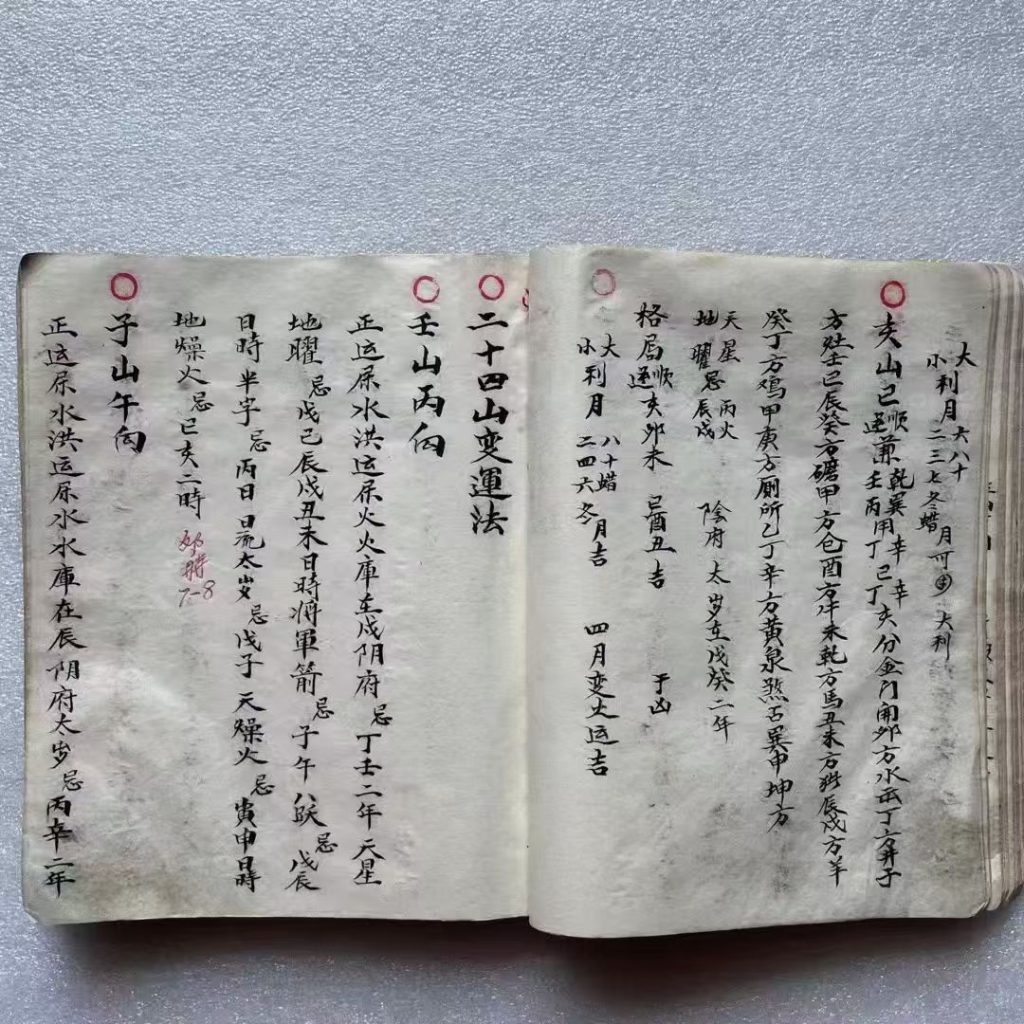 大利月 六八十
小利月 二三七冬蜡 月可 大利
亥山巳 順逆 兼 乾巽壬丙 用 辛丁 巳辛丁亥分金门開卯方水缶丁方井子
方灶壬巳辰癸方礳甲方仓酉方牛未乾方馬丑未方猪辰戌方羊
癸丁方鸡甲庚方厕所乙丁辛方黄泉煞占巽申坤方
天星 丙火 陰府太岁在戊癸二年
地曜忌辰戌
格局 順逆 亥卯未 巳酉丑 吉 于凶
大利月 八十蜡
小利月 二四六冬 月吉 四月变火运吉
二十四山变運法
壬山丙向
正运屎水洪运屎火火庫在戌阴府忌丁壬二年天星
地曜忌戊己辰戌丑未日時将軍箭忌子午八跃忌戊辰
日時半字忌丙日日流太岁忌戊子天燥火忌寅申日時
地燥火忌巳亥二時
7-8
子山午向
正运屎水洪运屎水水庫在辰阴府太岁忌丙辛二年